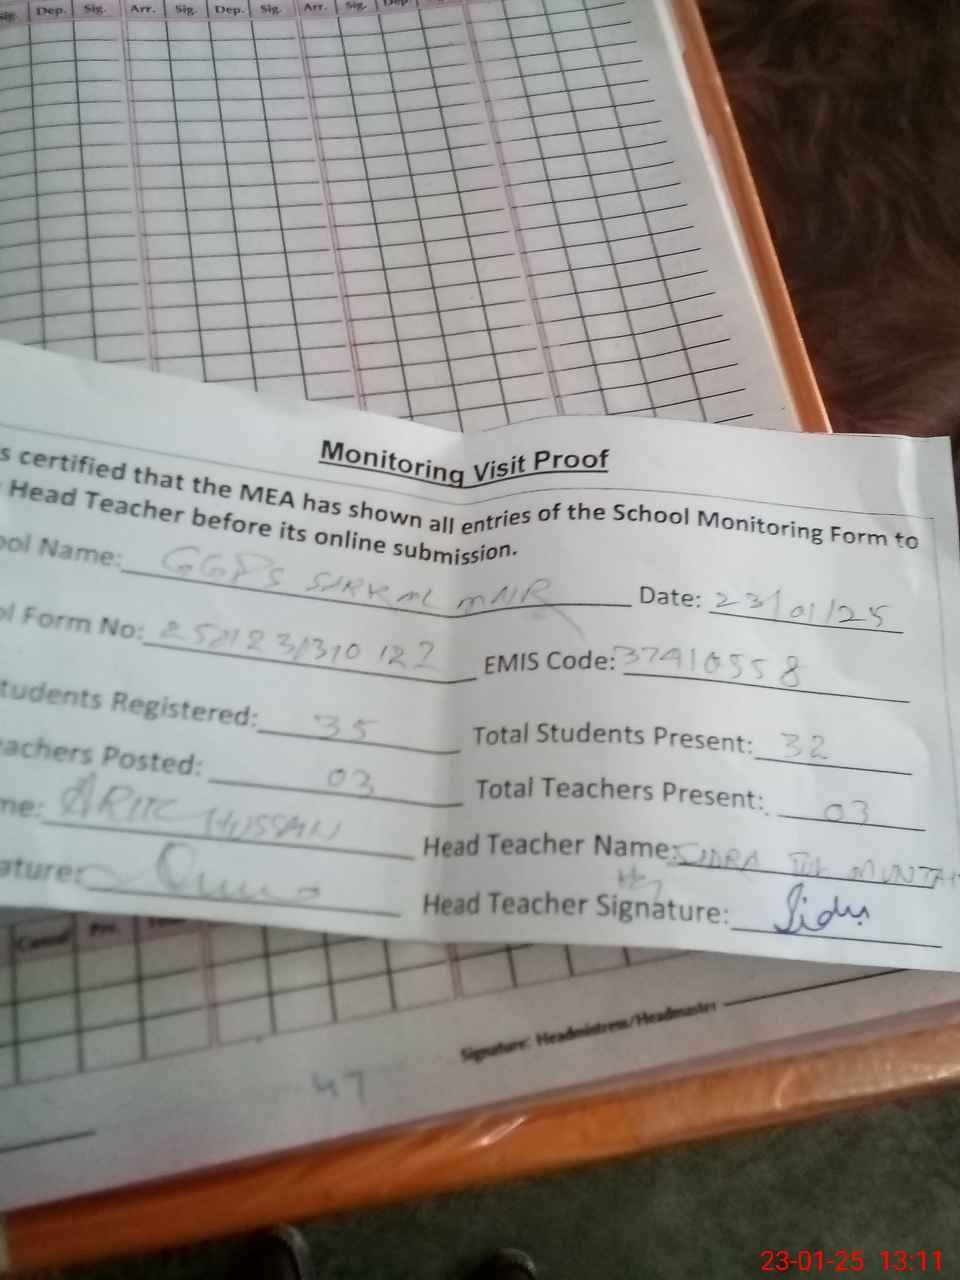 Dep. Sig. Arr. Sig. Dep. Sig. Arr. Sig. Dep
Monitoring Visit Proof
s certified that the MEA has shown all entries of the School Monitoring Form to
Head Teacher before its online submission.
ool Name: GGPS Date: 23/01/25
ol Form No: EMIS Code: 37410558
tudents Registered: 35 Total Students Present: 32
eachers Posted: 03 Total Teachers Present: 03
me: HUSSAIN Head Teacher Name: MUNTAH
ature: Head Teacher Signature:
Signature: Headmistress/Headmaster
47
23-01-25 13:11